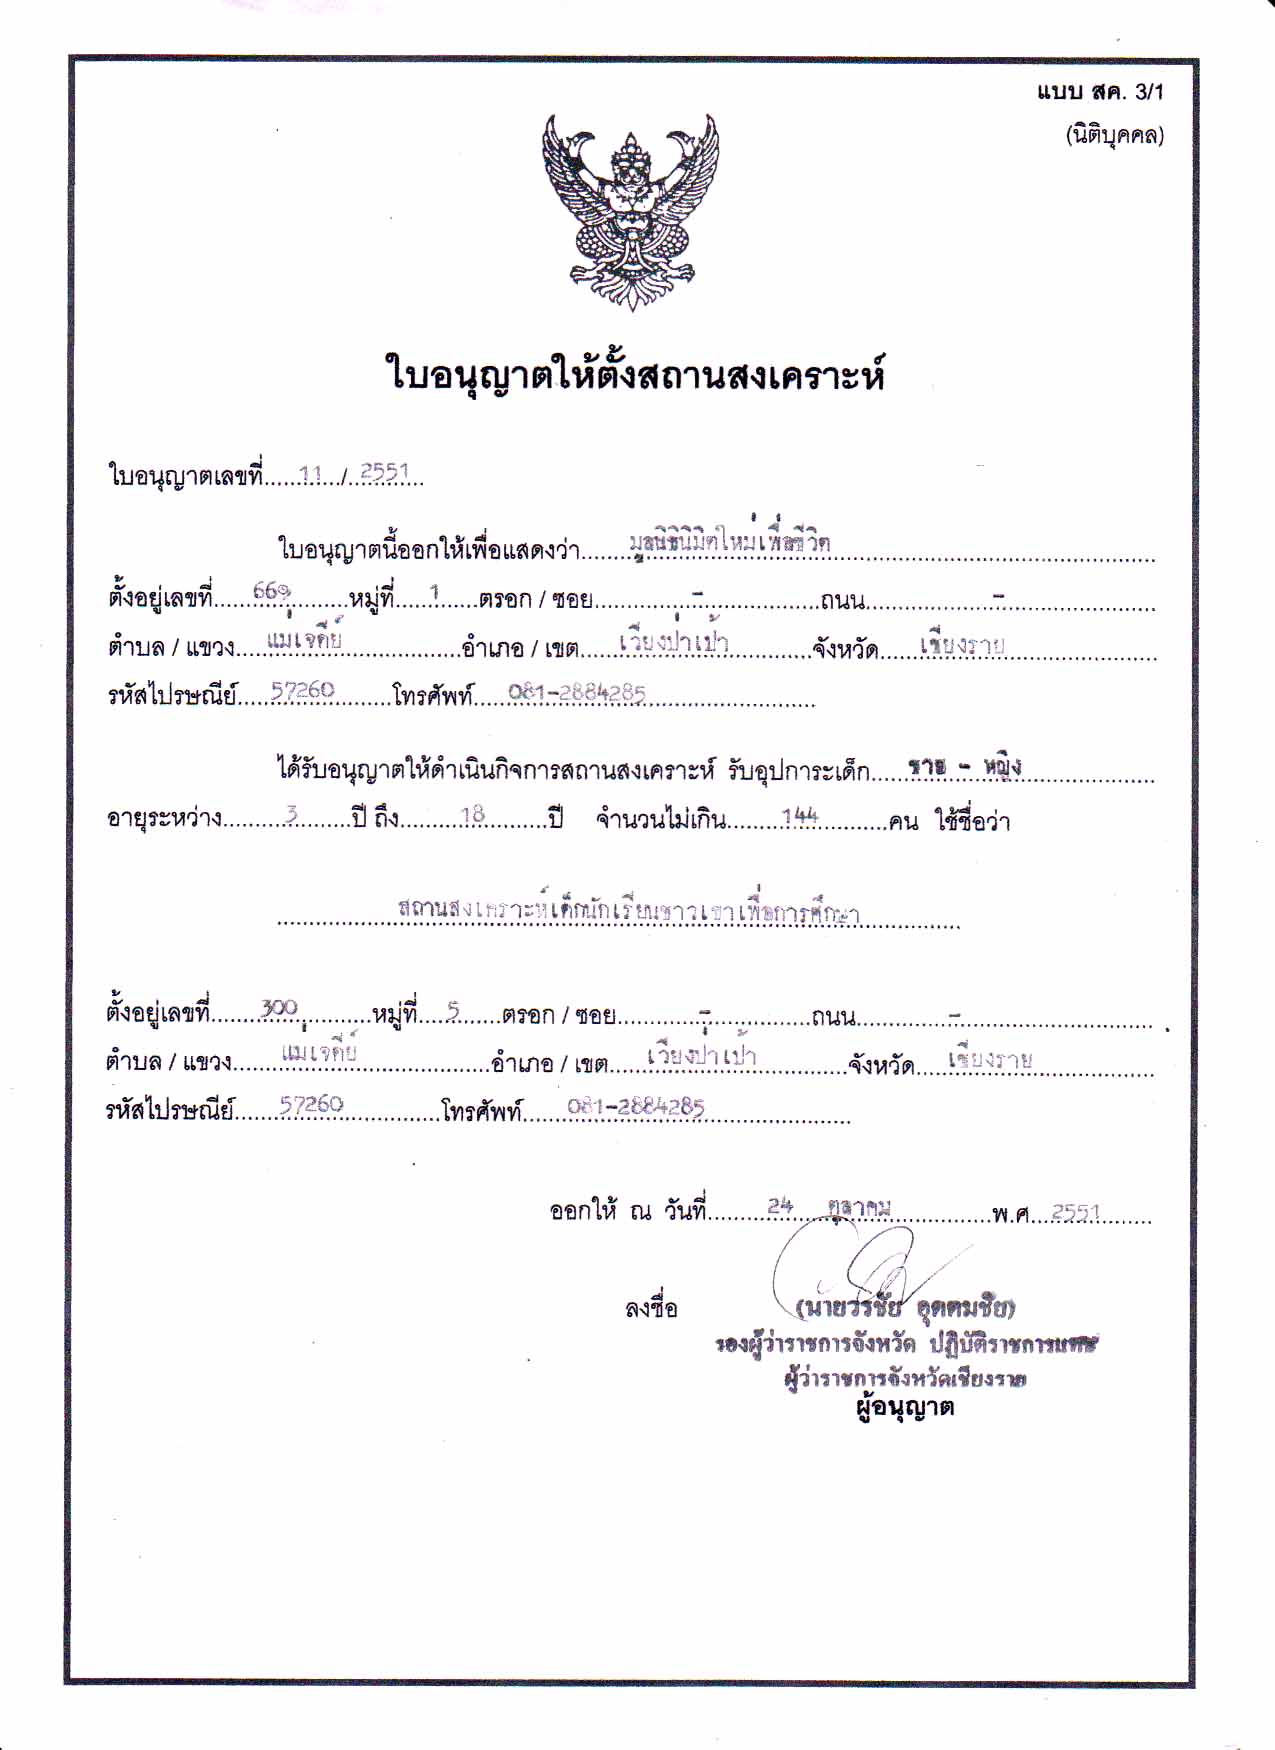 แบบ สค. 3/1
(นิติบุคคล)
ใบอนุญาตให้ตั้งสถานสงเคราะห์
ใบอนุญาตเลขที่......11.../..2551..
ใบอนุญาตนี้ออกให้เพื่อแสดงว่า........มูลนิธินิมิตใหม่เพื่อชีวิต........
ตั้งอยู่เลขที่......669......หมู่ที่.....1......ตรอก / ซอย........-........ถนน........-........
ตำบล / แขวง.....แม่เจดีย์........อำเภอ / เขต.....เวียงป่าเป้า........จังหวัด.....เชียงราย........
รหัสไปรษณีย์.....57260........โทรศัพท์.....081-2884285........
ได้รับอนุญาตให้ดำเนินกิจการสถานสงเคราะห์ รับอุปการะเด็ก.....ชาย - หญิง........
อายุระหว่าง........3........ปี ถึง........18........ปี จำนวนไม่เกิน........144........คน ใช้ชื่อว่า
........สถานสงเคราะห์เด็กนักเรียนชาวเขาเพื่อการศึกษา........
ตั้งอยู่เลขที่......300......หมู่ที่....5......ตรอก / ซอย........-........ถนน........-........
ตำบล / แขวง.....แม่เจดีย์........อำเภอ / เขต.....เวียงป่าเป้า........จังหวัด.....เชียงราย........
รหัสไปรษณีย์.....57260........โทรศัพท์.....081-2884285........
ออกให้ ณ วันที่........24 ตุลาคม........พ.ศ...2551........
ลงชื่อ (นายวรชัย อุตตมชัย)
รองผู้ว่าราชการจังหวัด ปฏิบัติราชการแทน
ผู้ว่าราชการจังหวัดเชียงราย
ผู้อนุญาต